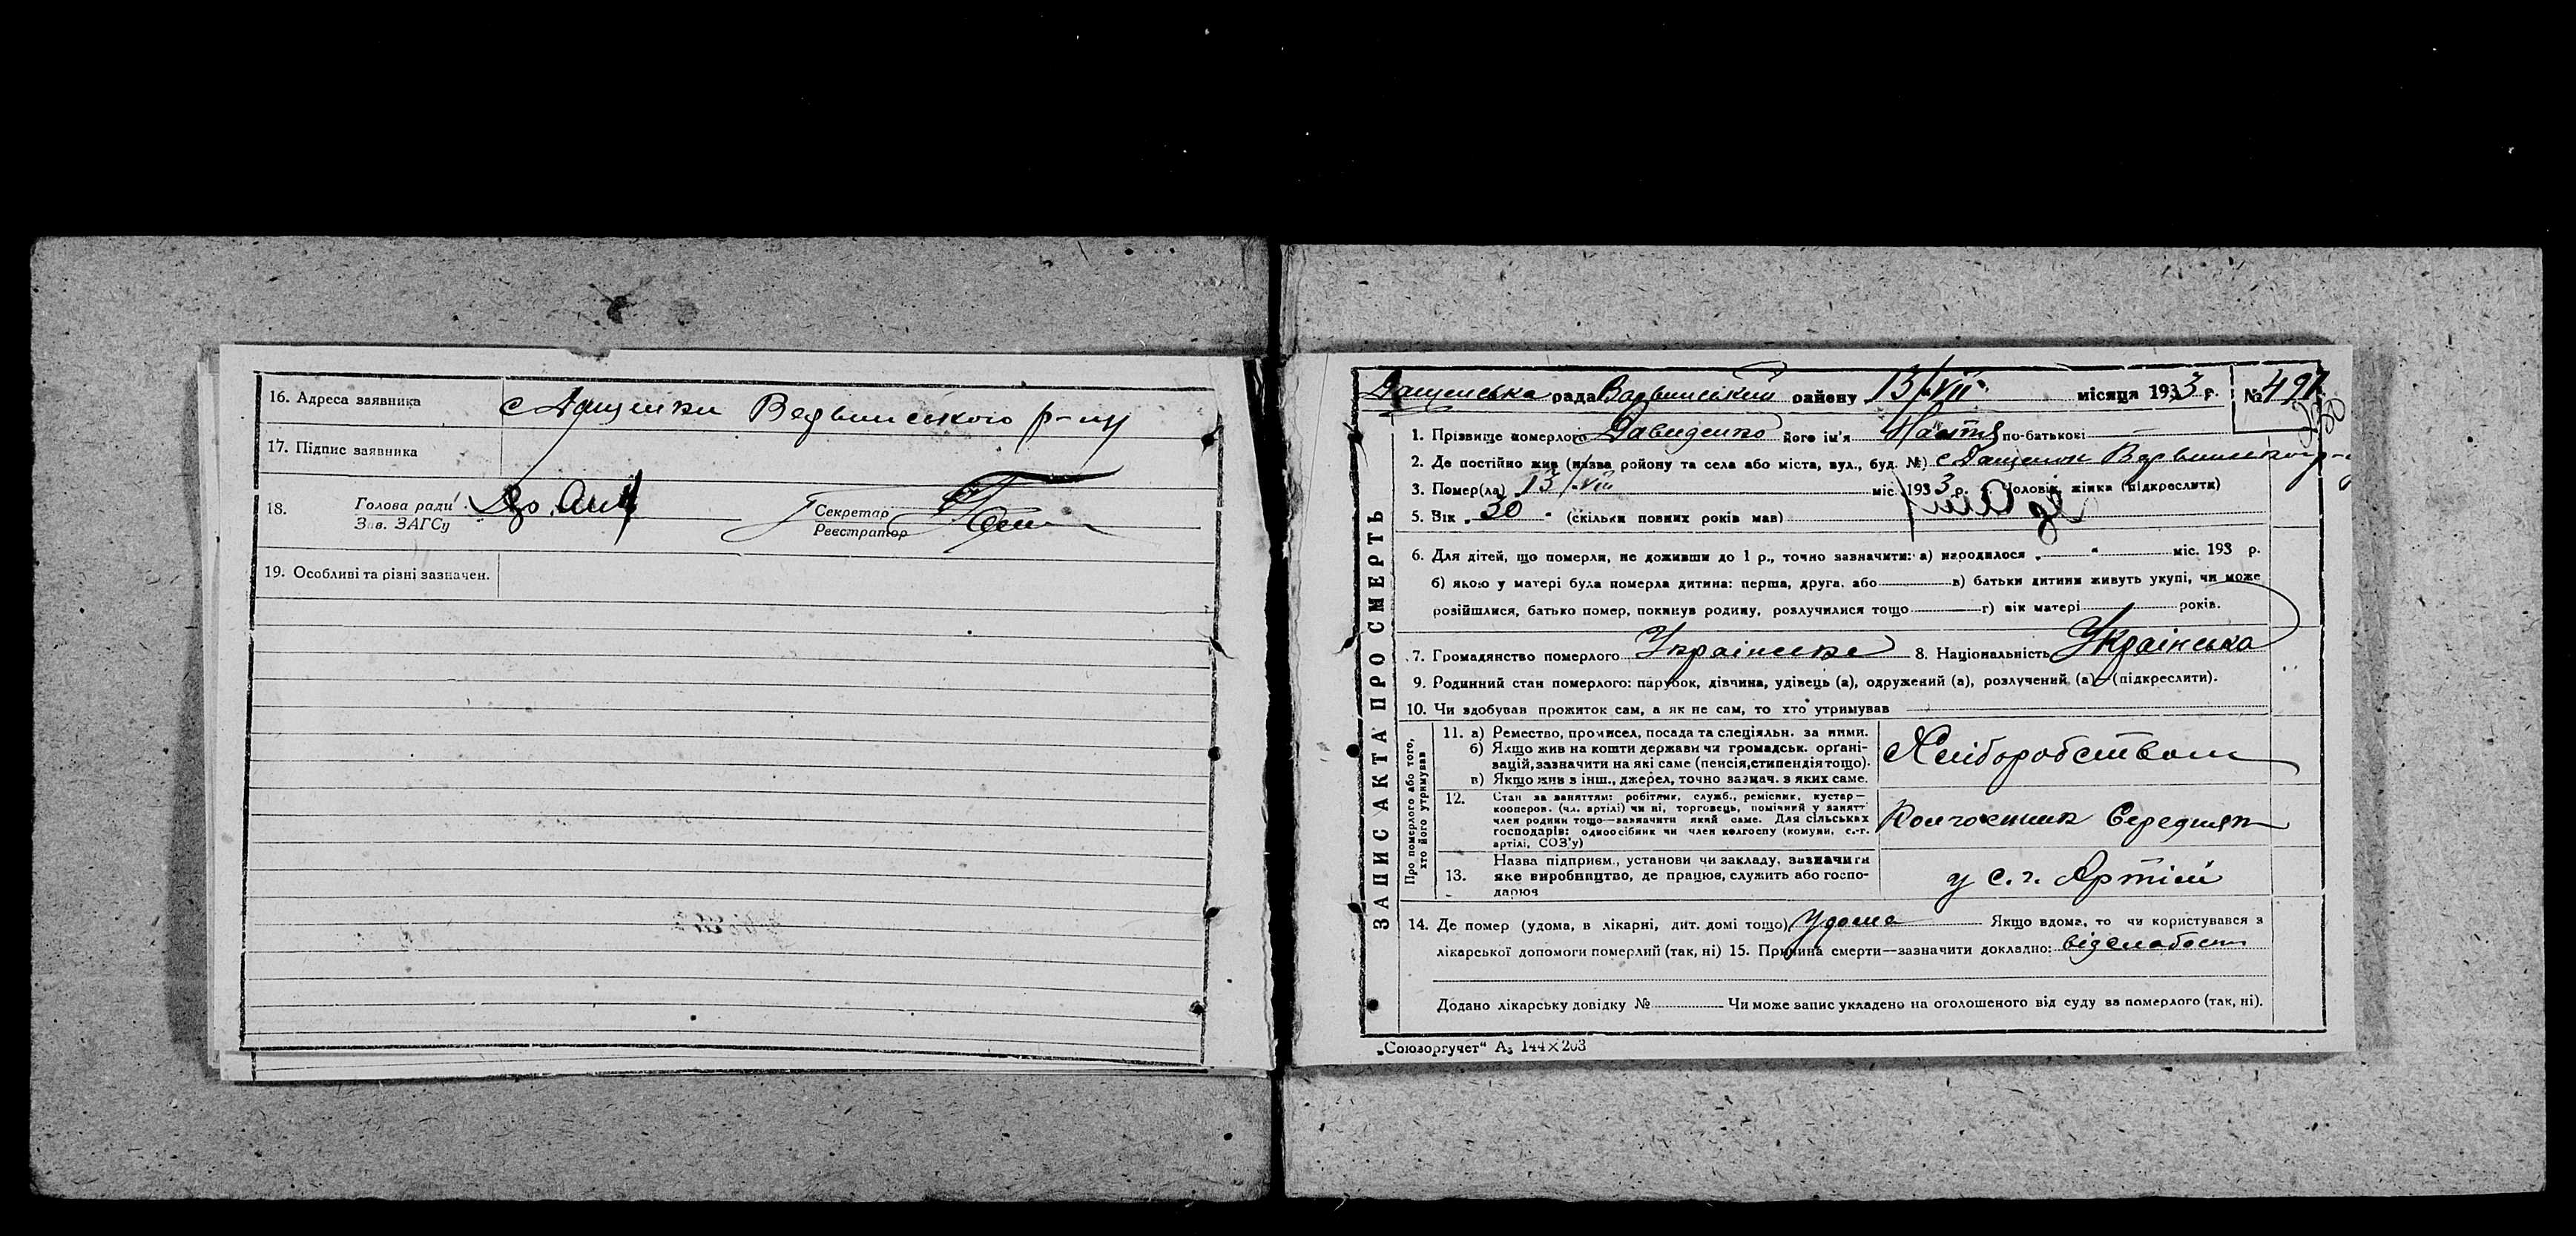 16. Адреса заявника с Дащенки Варвинського р-ну
17. Підпис заявника
18. Голова ради
Зав. ЗАГСу
Секретар
Реєстратор
19. Особливі та різні зазначен.
ЗАПИС АКТА ПРО СМЕРТЬ
Дащенська рада Варвинський району 13/VII місяця 1933 р. № 497
230
1. Прізвище померлого Давиденко його ім'я Настя по-батькові
2. Де постійно жив (назва району та села або міста, вул., буд. №) с Дащенки Варвинського р-ну
3. Помер(ла) 13/VII міс. 1933 р. Чоловік, жінка (підкреслити)
5. Вік „ 30 " (скільки повних років мав)
6. Для дітей, що померли, не доживши до 1 р., точно зазначити: а) народилося „ " міс. 193 р.
б) якою у матері була померла дитина: перша, друга, або в) батьки дитини живуть укупі, чи може
розійшлися, батько помер, покинув родину, розлучилися тощо г) вік матері років.
7. Громадянство померлого Українське 8. Національність Українська
9. Родинний стан померлого: парубок, дівчина, удівець (а), одружений (а), розлучений (а) (підкреслити).
10. Чи здобував прожиток сам, а як не сам, то хто утримував
Про померлого або того, хто його утримував
11. а) Ремество, промисел, посада та спеціяльн. за ними.
б) Якщо жив на кошти держави чи громадськ. орґані-
зацій, зазначити на які саме (пенсія, стипендія тощо).
в) Якщо жив з інш., джерел, точно зазнач. з яких саме.
Хліборобством
12. Стан за заняттям: робітник, служб., ремісник, кустар—
кооперов. (чл. артілі) чи ні, торговець, помічний у занятт
член родини тощо—зазначити який саме. Для сільських
господарів: одноосібник чи член колгоспу (комуни, с.-г.
артілі, СОЗ'у)
Колгоспник Середняк
13. Назва підприєм., установи чи закладу, зазначити
яке виробництво, де працює, служить або госпо-
дарює
у с. г. Артілі
14. Де помер (удома, в лікарні, дит. домі тощо) Удома Якщо вдома, то чи користувався з
лікарської допомоги померлий (так, ні) 15. Причина смерти—зазначити докладно: від слабости
Додано лікарську довідку № Чи може запис укладено на оголошеного від суду за померлого (так, ні).
„Союзоргучет" А₅ 144×203